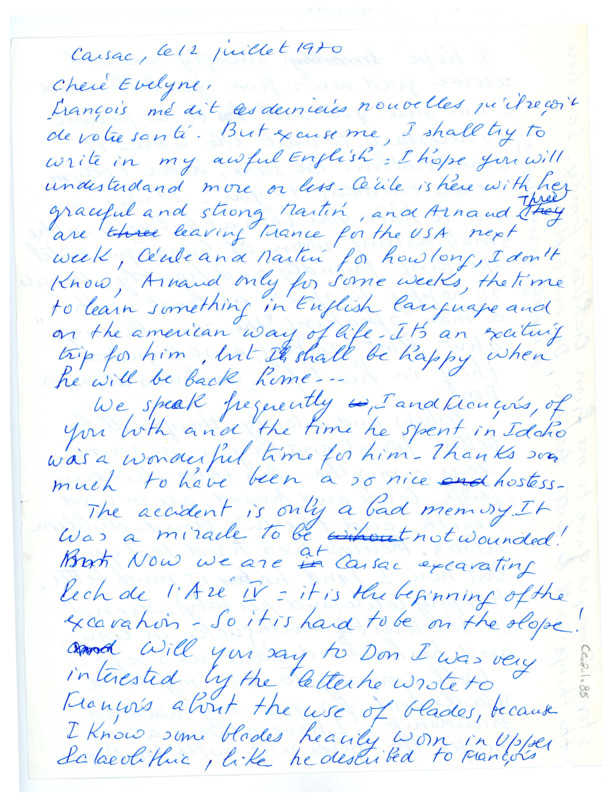 Carsac, le 12 juillet 1970
Chère Evelyne,
François me dit les dernières nouvelles qu'il reçoit
de votre santé. But excuse me, I shall try to
write in my awful English = I hope you will
understand more or less - Cécile is here with her
graceful and strong Martin, and Arnaud Three ~~They~~
are ~~three~~ leaving France for the USA next
week, Cécile and Martin for how long, I don't
Know, Arnaud only for some weeks, the time
to learn something in English language and
on the american way of life - It's an exciting
trip for him, but I shall be happy when
he will be back home ---
We speak frequently, I and François, of
you both and the time he spent in Idaho
was a wonderful time for him - Thanks so
much to have been a so nice ~~and~~ hostess -
The accident is only a bad memory. It
was a miracle to be ~~without~~ not wounded!
Now we are at ~~in~~ Carsac excavating
Pech de l'Azé IV = it is the beginning of the
excavation - So it is hard to be on the slope!
~~and~~ Will you say to Don I was very
interested by the letter he wrote to
François about the use of blades, because
I Know some blades heavily worn in Upper
Palaeolithic, like he described to François
Ce.2.1.85